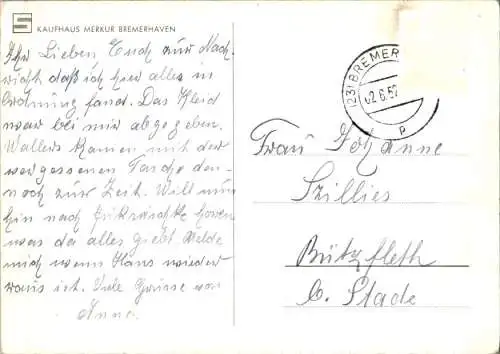 KAUFHAUS MERKUR BREMERHAVEN
Ihr Lieben Euch zur Nach-
richt daß ich hier alles in
Ordnung fand. Das Kleid
war bei mir abgegeben.
Wallers kamen mit der
vergessenen Tasche den-
noch zur Zeit. Will nun
hin nach
was da alles giebt. Melde
mich wenn Hans wieder
raus ist. Viele Grüsse von
Anne.
(23) BREMER
02.6.52
p
Frau Johanne
Szillies
Bützfleth
b. Stade